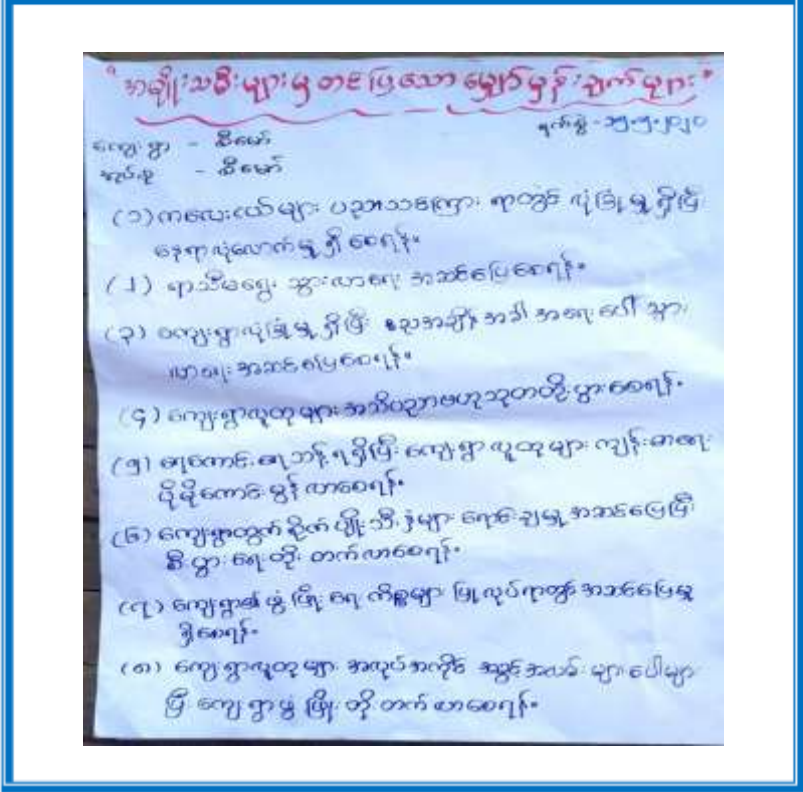 "အမျိုးသမီးများမှ တင်ပြသော မျှော်မှန်းချက်များ"
ရက်စွဲ - ၁၅.၅.၂၀၂၀
ကျေးရွာ - ဆီမော်
အုပ်စု - ဆီမော်
(၁) ကလေးငယ်များ ပညာသင်ကြားရာတွင် လုံခြုံမှုရှိပြီး
နေရာလုံလောက်မှုရှိစေရန်။
(၂) ရာသီမရွေး သွားလာရေး အဆင်ပြေစေရန်။
(၃) ကျေးရွာလုံခြုံမှုရှိပြီး ညအချိန်အခါ အရေးပေါ် သွား
လာရေး အဆင်ပြေစေရန်။
(၄) ကျေးရွာလူထုများ အသိပညာဗဟုသုတတိုးပွားစေရန်။
(၅) ရေကောင်းရေသန့်ရရှိပြီး ကျေးရွာလူထုများ ကျန်းမာရေး
ပိုမိုကောင်းမွန်လာစေရန်။
(၆) ကျေးရွာထွက်စိုက်ပျိုးသီးနှံများ ရောင်းချမှု အဆင်ပြေပြီး
စီးပွားရေးတိုးတက်လာစေရန်။
(၇) ကျေးရွာ၏ဖွံ့ဖြိုးရေးကိစ္စများ ပြုလုပ်ရာတွင် အဆင်ပြေမှု
ရှိစေရန်။
(၈) ကျေးရွာလူထုများ အလုပ်အကိုင် အခွင့်အလမ်းများပေါများ
ပြီး ကျေးရွာဖွံ့ဖြိုးတိုးတက်လာစေရန်။